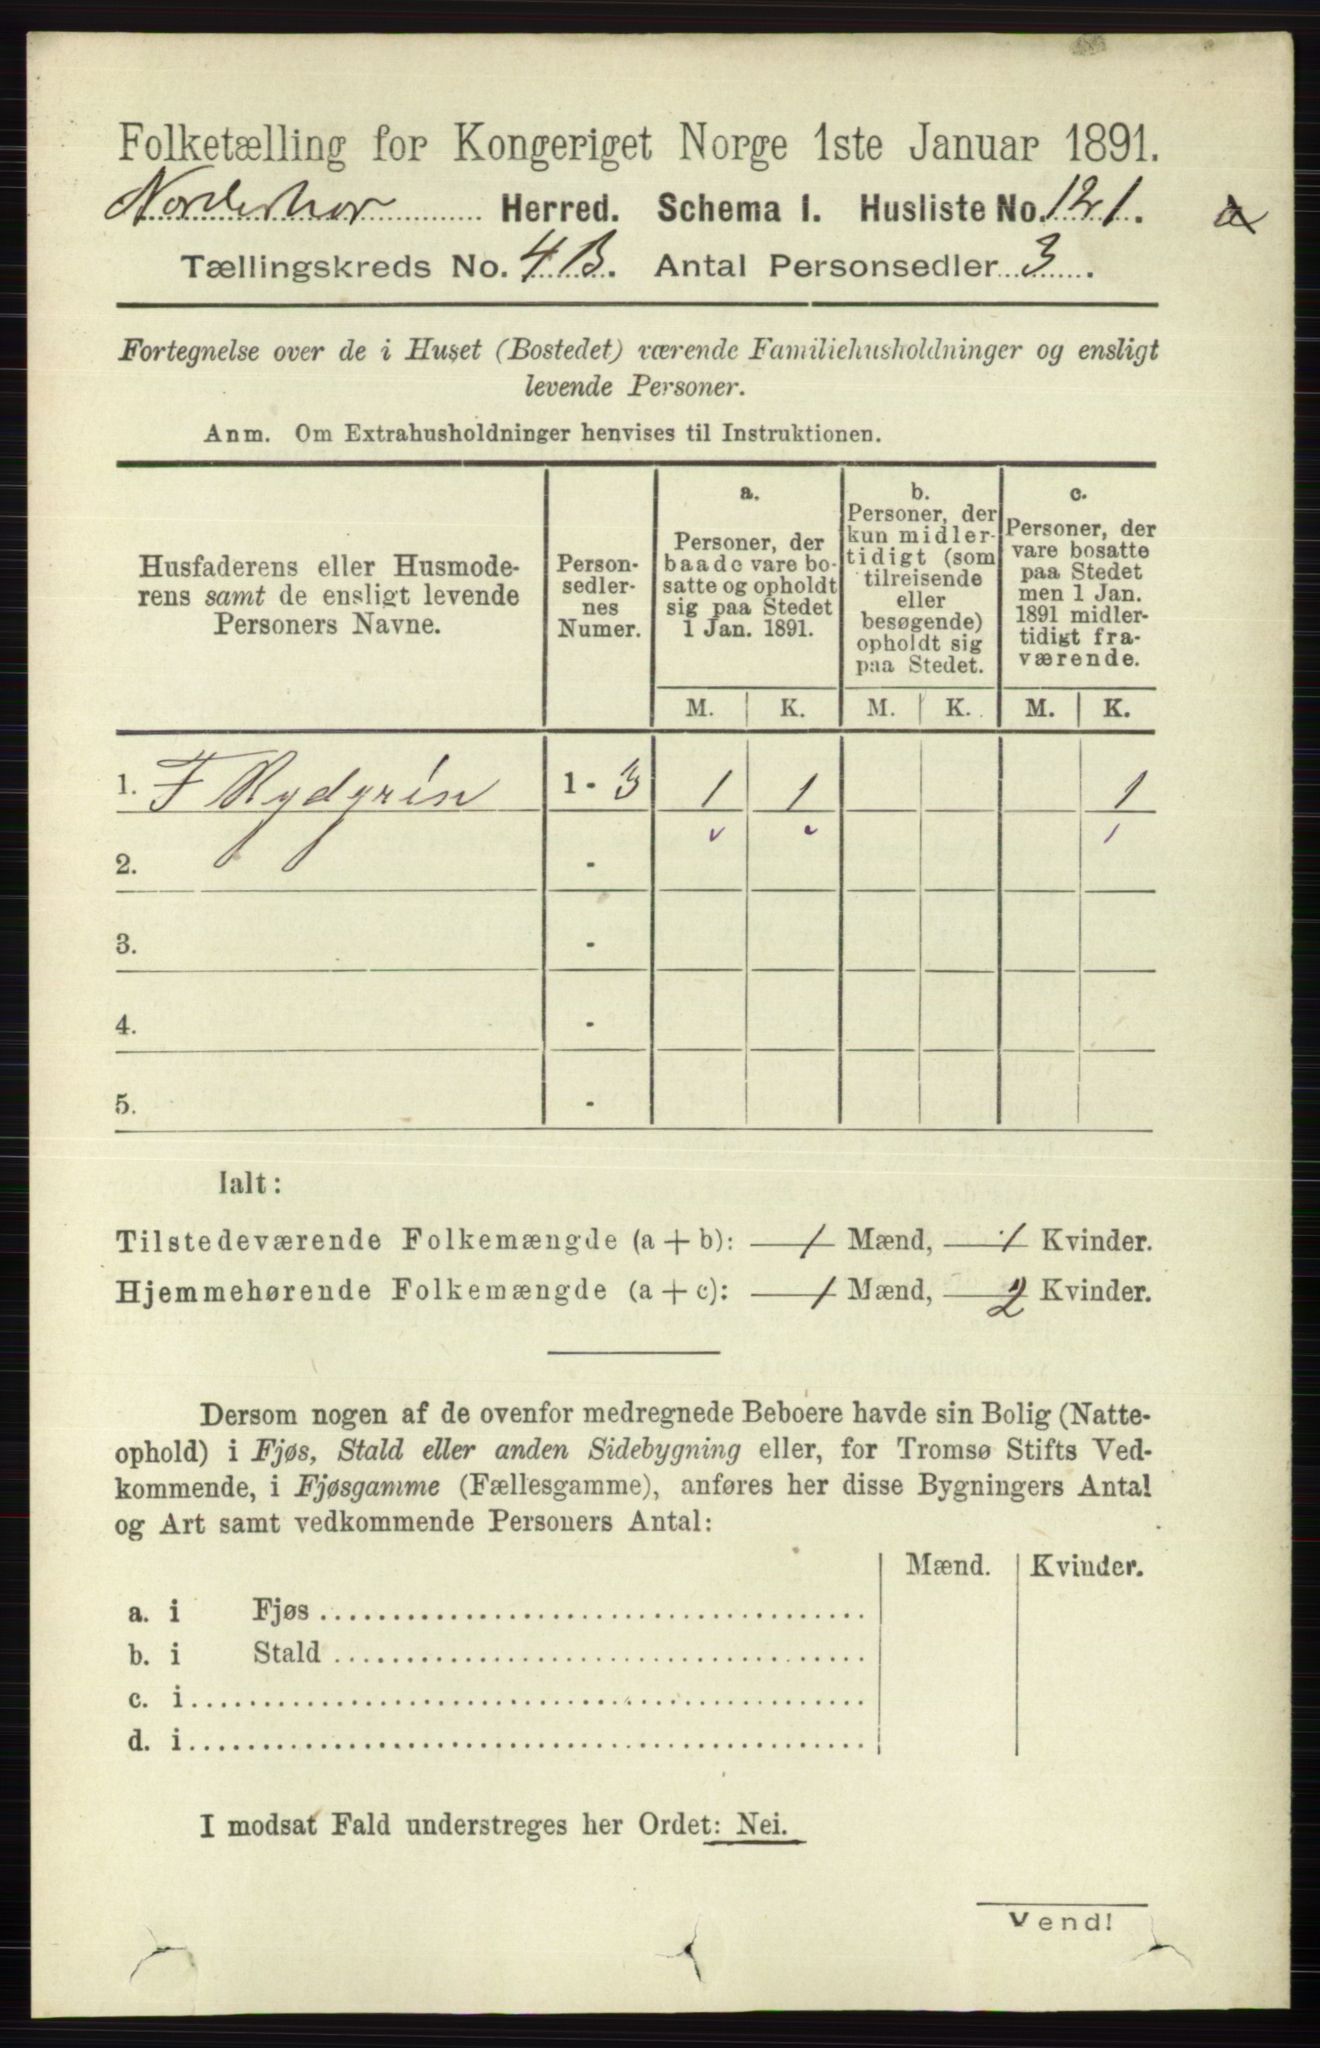 Folketælling for Kongeriget Norge 1ste Januar 1891.
Norderhov Herred. Schema I. Husliste No. 121.
Tællingskreds No. 4B. Antal Personsedler 3.
Fortegnelse over de i Huset (Bostedet) værende Familiehusholdninger og ensligt
levende Personer.
Anm. Om Extrahusholdninger henvises til Instruktionen.
Husfaderens eller Husmode-
rens samt de ensligt levende
Personers Navne.
Person-
sedler-
nes
Numer.
a.
Personer, der
baade vare bo-
satte og opholdt
sig paa Stedet
1 Jan. 1891.
b.
Personer, der
kun midler-
tidigt (som
tilreisende
eller
besøgende)
opholdt sig
paa Stedet.
c.
Personer, der
vare bosatte
paa Stedet
men 1 Jan.
1891 midler-
tidigt fra-
værende.
M. K. M. K. M. K.
1. F Rydgrén 1 - 3 1 1 1
2. -
3. -
4. -
5. -
Ialt:
Tilstedeværende Folkemængde (a + b): 1 Mænd, 1 Kvinder.
Hjemmehørende Folkemængde (a + c): 1 Mænd, 2 Kvinder.
Dersom nogen af de ovenfor medregnede Beboere havde sin Bolig (Natte-
ophold) i Fjøs, Stald eller anden Sidebygning eller, for Tromsø Stifts Ved-
kommende, i Fjøsgamme (Fællesgamme), anføres her disse Bygningers Antal
og Art samt vedkommende Personers Antal:
Mænd. Kvinder.
a. i Fjøs
b. i Stald
c. i
d. i
I modsat Fald understreges her Ordet: Nei.
Vend!